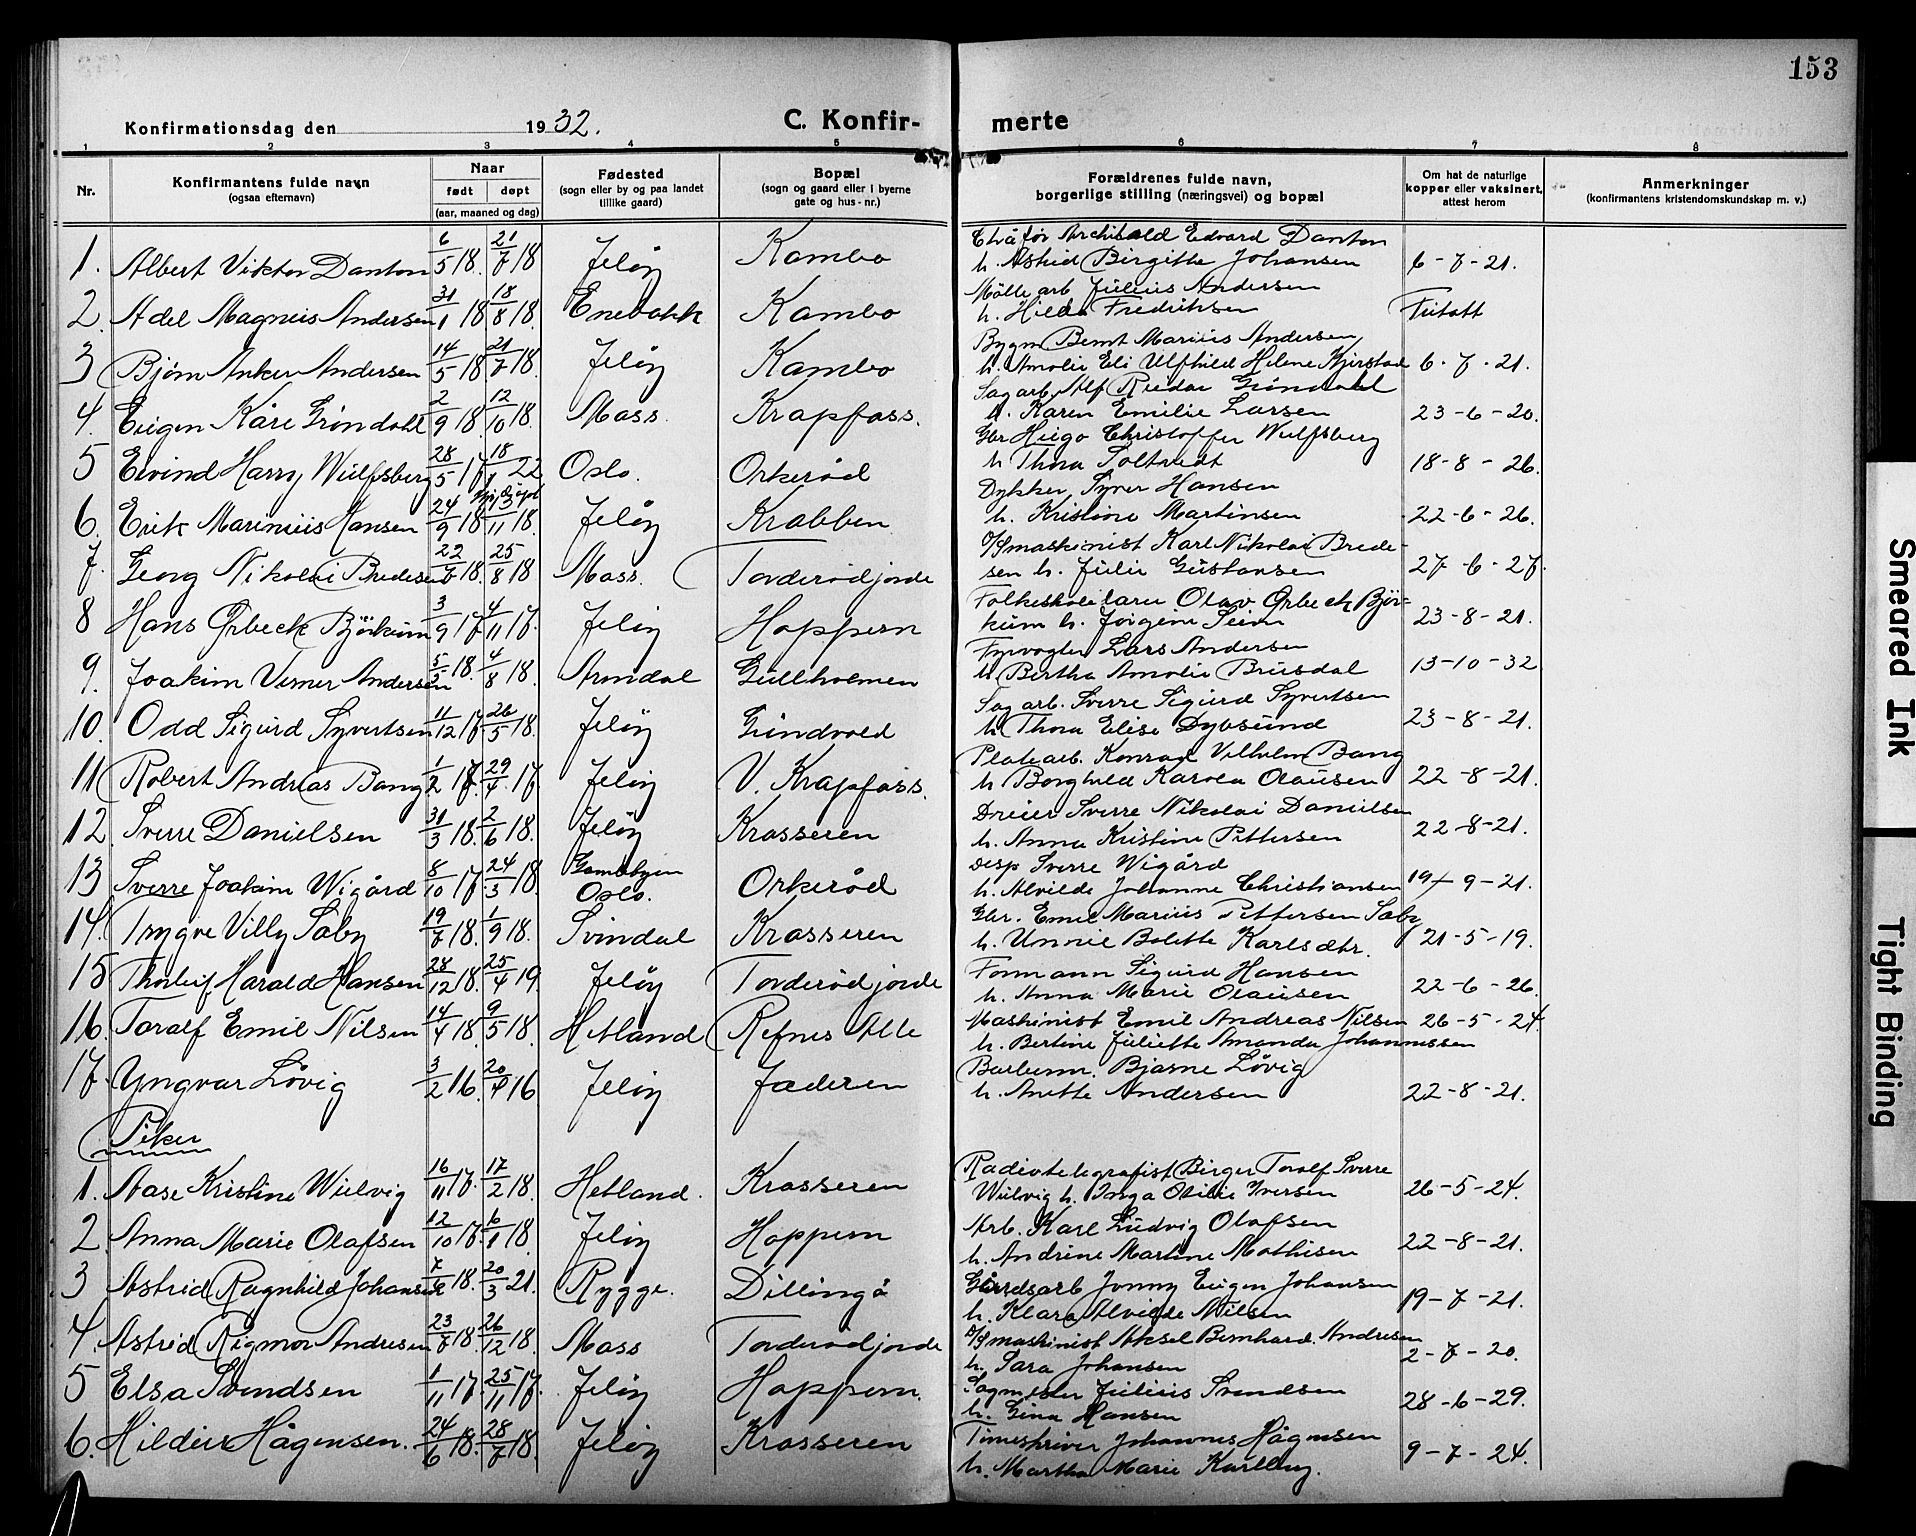 153
Konfirmationsdag den 1932. C. Konfir- merte
1 2 3 4 5 6 7 8
Nr. Konfirmantens fulde navn (ogsaa efternavn) Naar født døpt (aar, maaned og dag) Fødested (sogn eller by og paa landet tillike gaard) Bopæl (sogn og gaard eller i byerne gate og hus-nr.) Forældrenes fulde navn, borgerlige stilling (næringsvei) og bopæl Om hat de naturlige kopper eller vaksinert, attest herom Anmerkninger (konfirmantens kristendomskundskap m. v.)
1. Albert Viktor Danton 6/5 18. 21/7 18 Jeløy Kambo Archibald Edvard Danton
h. Astrid Birgitte Johansen 6-7-21.
2. Adel Magnus Andersen 31/1 18 18/8 18. Enebakk Kambo Mølle arb Julius Andersen
h. Hilda Fredriksen Fritatt
3 Bjørn Anker Andersen 14/5 18 21/7 18. Jeløy Kambo Bygm Bernt Marius Andersen
h. Amalie Eli Ulfhild Helene Kjirstad 6-7-21.
4. Eugen Kåre Grøndahl 2/9 18. 12/10 18. Moss. Krapfoss. Sagarb. Alf Reidar Grøndahl
h. Karen Emilie Larsen 23-6-20.
5 Eivind Harry Wulfsberg 28/5 17 18/1 22 Oslo. Orkerød Gbr Hugo Christoffer Wulfsberg
h Thora Soltvedt 18-8-26.
6. Erik Marinius Hansen 24/9 18 3/11 18. Jeløy Krabben Dykker Syver Hansen
h. Kristine Martinsen 22-6-26.
7. Georg Nikolai Bredesen 22/7 18. 25/8 18 Moss. Torderødjorde O/Smaskinist Karl Nikolai Brede-
sen h. Julie Gustavsen 27-6-27.
8 Hans Ørbeck Bjørkum 3/9 17 4/11 17. Jeløy Hoppern Folkeskolelærer Olav Ørbeck Bjør-
kum h. Jørgine Seim 23-8-21.
9. Joakim Verner Andersen 5/5 18. 4/8 18. Arendal Gullholmen Fyrvogter Lars Andersen
h Bertha Amalie Brusdal 13-10-32
10. Odd Sigurd Syvertsen 11/12 17. 26/5 18. Jeløy Grindvold Sagarb. Sverre Sigurd Syvertsen
h Thora Elise Dybsund 23-8-21.
11 Robert Andreas Bang 1/2 17. 29/4 17. Jeløy V. Krapfoss. Platearb. Konrad Vilhelm Bang
h Borghild Karola Olausen 22-8-21.
12. Sverre Danielsen 31/3 18. 2/6 18. Jeløy Krosseren Dreier Sverre Nikolai Danielsen
h. Anna Kristine Pettersen 22-8-21.
13 Sverre Joakim Wigård 8/10 17 24/3 18. Gamlebyen Oslo. Orkerød Desp Sverre Wigård
h. Alvilde Johanne Christiansen 19-9-21.
14. Trygve Villy Sæby 19/7 18. 1/9 18. Svindal Krosseren Gbr. Emil Marius Pettersen Sæby
h. Unnie Bolette Karlsdtr. 21-5-19.
15 Thorleif Harald Hansen 28/12 18. 25/4 19. Jeløy Torderødjorde Formann Sigurd Hansen
h. Anna Marie Olausen 22-6-26.
16. Toralf Emil Nilsen 14/4 18. 9/5 18. Hetland Refnes Alle Maskinist Emil Andreas Nilsen 26-5-24
h. Bertine Juliette Amanda Johannessen
17. Yngvar Løvig 3/2 16. 20/4 16 Jeløy Jaderen Bjarne Løvig
h. Anette Andersen 22-8-21.
Piker
1. Aase Kristine Wulvig 16/11 17. 17/2 18. Hetland. Krosseren Radiotelegrafist Birger Toralf Sverre
Wulvig h. Inga Otilie Iversen 26-5-24.
2. Anna Marie Olafsen 12/10 17. 6/1 18. Jeløy Hoppern Arb. Karl Ludvig Olafsen
h. Andrine Martine Mathisen 22-8-21.
3 Astrid Ragnhild Johansen 7/6 18. 20/3 21. Rygge. Dillingø Gårdsarb Jonny Eugen Johansen
h. Klara Alvilde Nilsen 19-7-21.
4. Astrid Rigmor Andresen 23/7 18. 26/12 18. Moss Torderødjorde O/Smaskinist Aksel Bernhard Andresen
h. Sara Johansen 2-7-20.
5 Elsa Svendsen 1/11 17. 25/11 17. Jeløy Hoppern. Sagmester Julius Svendsen
h. Gina Hansen 28-6-29.
6. Hildur Hågensen. 24/6 18. 28/7 18. Jeløy Krosseren Timeskriver Johannes Hågensen
h. Martha Marie Karlberg. 9-7-24.
Smeared Ink
Tight Binding